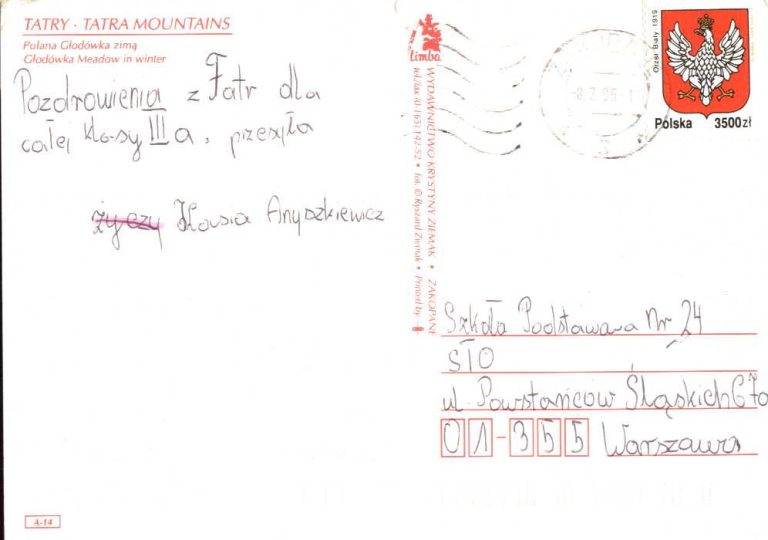 TATRY · TATRA MOUNTAINS
Polana Głodówka zimą
Głodówka Meadow in winter
Pozdrowienia z Tatr dla
całej klasy III a, przesyła
życzy Kasia Anyszkiewicz
A-14
Limba
WYDAWNICTWO KRYSTYNY ZIEMAK • ZAKOPANE
tel./fax (0-165) 142-52 • fot. © Ryszard Ziemak • Printed by
Orzeł Biały 1919
Polska 3500 zł
Szkoła Podstawowa Nr 24
STO
ul. Powstańców Śląskich
01-355 Warszawa